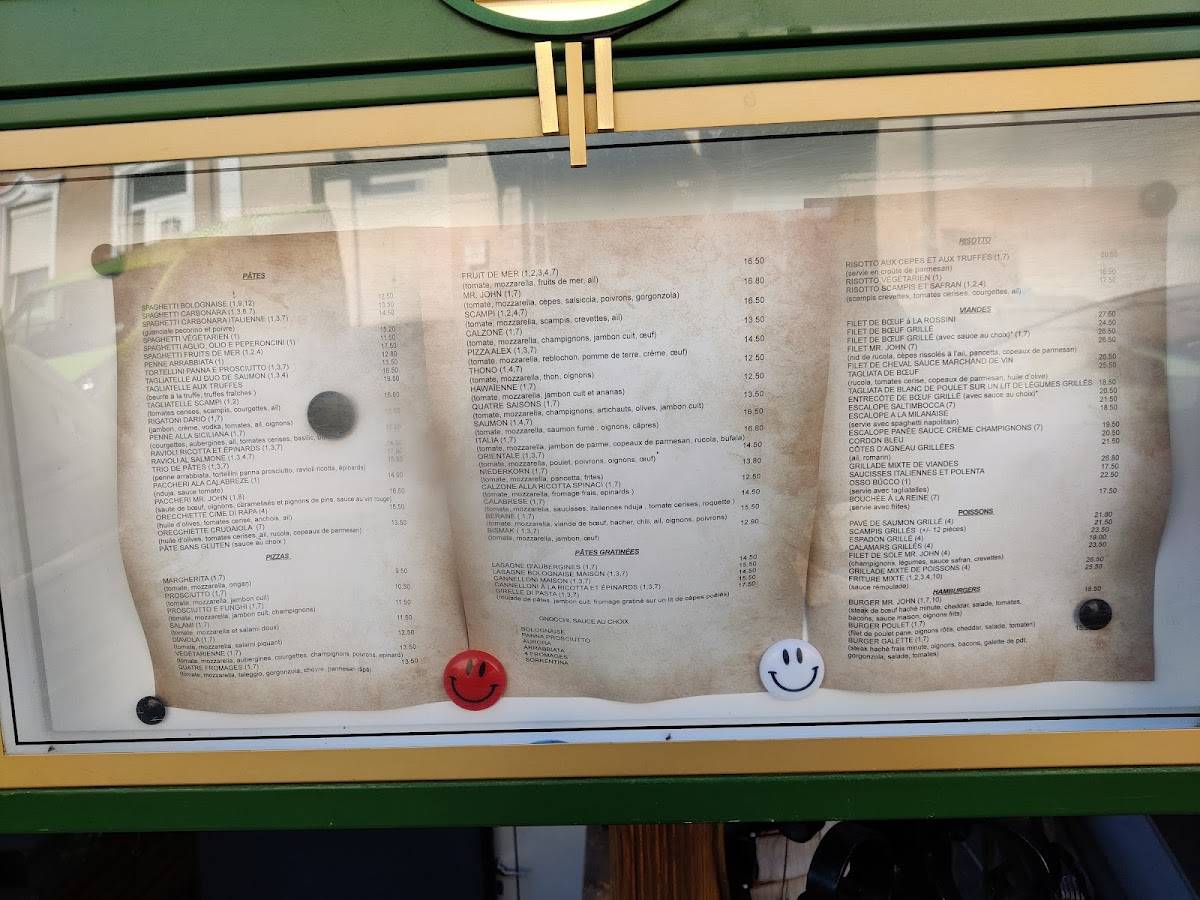 PÂTES
SPAGHETTI BOLOGNAISE (1,9,12)
SPAGHETTI CARBONARA (1,3,6,7)
SPAGHETTI CARBONARA ITALIENNE (1,3,7)
(guanciale pecorino et poivre)
SPAGHETTI VÉGÉTARIEN (1)
SPAGHETTI AGLIO, OLIO E PEPERONCINI (1)
SPAGHETTI FRUITS DE MER (1,2,4)
PENNE ARRABBIATA (1)
TORTELLINI PANNA E PROSCIUTTO (1,3,7)
TAGLIATELLE AU DUO DE SAUMON (1,3,4)
TAGLIATELLE AUX TRUFFES
(beurre à la truffe, truffes fraîches )
TAGLIATELLE SCAMPI (1,2)
(tomates cerises, scampis, courgettes, ail)
RIGATONI DARIO (1,7)
(jambon, crème, vodka, tomates, ail, oignons)
PENNE ALLA SICILIANA (1,7)
(courgettes, aubergines, ail, tomates cerises, basilic,
RAVIOLI RICOTTA ET ÉPINARDS (1,3,7)
RAVIOLI AL SALMONE (1,3,4,7)
TRIO DE PÂTES (1,3,7)
(penne arrabbiata, tortellini panna prosciutto, ravioli ricotta, épinards)
PACCHERI ALA CALABREZE (1)
(nduja, sauce tomate)
PACCHERI MR. JOHN (1,8)
(sauté de bœuf, oignons, caramelisés et pignons de pins, sauce au vin rouge)
ORECCHIETTE CIME DI RAPA (4)
(huile d'olives, tomates cerise, anchois, ail)
ORECCHIETTE CRUDAIOLA (7)
(huile d'olives, tomates cerises, ail, rucola, copeaux de parmesan)
PÂTE SANS GLUTEN (sauce au choix )
PIZZAS
MARGHERITA (1,7) 9.50
(tomate, mozzarella, origan)
PROSCIUTTO (1,7) 10.50
(tomate, mozzarella, jambon cuit)
PROSCIUTTO E FUNGHI (1,7) 11.50
(tomate, mozzarella, jambon cuit, champignons)
SALAMI (1,7) 11.50
(tomate, mozzarella et salami doux)
DIAVOLA (1,7) 12.50
(tomate, mozzarella, salami piquant)
VÉGÉTARIENNE (1,7) 13.50
(tomate, mozzarella, aubergines, courgettes, champignons, poivrons, epinard)
QUATRE FROMAGES (1,7) 13.50
(tomate, mozzarella, taleggio, gorgonzola, chèvre, parmesan râpé)
FRUIT DE MER (1,2,3,4,7) 16.50
(tomate, mozzarella, fruits de mer, ail)
MR. JOHN (1,7) 16.80
(tomate, mozzarella, cèpes, salsiccia, poivrons, gorgonzola)
SCAMPI (1,2,4,7) 16.50
(tomate, mozzarella, scampis, crevettes, ail)
CALZONE (1,7) 13.50
(tomate, mozzarella, champignons, jambon cuit, œuf)
PIZZA ALEX (1,3,7) 14.50
(tomate, mozzarella, reblochon, pomme de terre, crème, œuf)
THONO (1,4,7) 12.50
(tomate, mozzarella, thon, oignons)
HAWAÏENNE (1,7) 12.50
(tomate, mozzarella, jambon cuit et ananas)
QUATRE SAISONS (1,7) 13.50
(tomate, mozzarella, champignons, artichauts, olives, jambon cuit)
SAUMON (1,4,7) 16.50
(tomate, mozzarella, saumon fumé , oignons, câpres)
ITALIA (1,7) 16.80
(tomate, mozzarella, jambon de parme, copeaux de parmesan, rucola, bufala)
ORIENTALE (1,3,7) 14.50
(tomate, mozzarella, poulet, poivrons, oignons, œuf)
NIEDERKORN (1,7) 13.80
(tomate, mozzarella, pancetta, frites)
CALZONE ALLA RICOTTA SPINACI (1,7) 12.50
(tomate, mozzarella, fromage frais, épinards )
CALABRESE (1,7) 14.50
(tomate, mozzarella, saucisses, italiennes nduja , tomate cerises, roquette )
15.50
(tomate, mozzarella, viande de bœuf, hacher, chili, ail, oignons, poivrons)
BISMAK (1,3,7) 12.90
(tomate, mozzarella, jambon, œuf)
PÂTES GRATINÉES
LASAGNE D'AUBERGINES (1,7) 14.50
LASAGNE BOLOGNAISE MAISON (1,3,7) 15.50
CANNELLONI MAISON (1,3,7) 14.50
CANNELLONI À LA RICOTTA ET ÉPINARDS (1,3,7) 15.50
GIRELLE DI PASTA (1,3,7) 17.50
(roulade de pâtes, jambon cuit, fromage gratiné sur un lit de cèpes poêlés)
GNOCCHI, SAUCE AU CHOIX
BOLOGNAISE
PANNA PROSCIUTTO
AURORA
ARRABBIATA
4 FROMAGES
SORRENTINA
RISOTTO
RISOTTO AUX CEPES ET AUX TRUFFES (1,7)
(servie en croûte de parmesan)
RISOTTO VÉGÉTARIEN (1) 16.50
RISOTTO SCAMPIS ET SAFRAN (1,2,4) 17.50
(scampis crevettes, tomates cerises, courgettes, ail)
VIANDES
FILET DE BŒUF à LA ROSSINI 27.50
FILET DE BŒUF GRILLÉ 24.50
FILET DE BŒUF GRILLÉ (avec sauce au choix)* (1,7) 26.50
FILET MR. JOHN (7) 26.50
(nid de rucola, cèpes rissolés à l'ail, pancetta, copeaux de parmesan)
FILET DE CHEVAL SAUCE MARCHAND DE VIN 26.50
TAGLIATA DE BŒUF 25.50
(rucola, tomates cerise, copeaux de parmesan, huile d'olive)
TAGLIATA DE BLANC DE POULET SUR UN LIT DE LÉGUMES GRILLÉS 18.50
ENTRECÔTE DE BŒUF GRILLÉ (avec sauce au choix)* 20.50
ESCALOPE SALTIMBOCCA (7) 21.50
ESCALOPE A LA MILANAISE 18.50
(servie avec spaghetti napolitain)
ESCALOPE PANÉE SAUCE CRÈME CHAMPIGNONS (7) 19.50
CORDON BLEU 20.50
CÔTES D'AGNEAU GRILLÉES 21.50
(ail, romarin)
GRILLADE MIXTE DE VIANDES 26.80
SAUCISSES ITALIENNES ET POLENTA 17.50
OSSO BUCCO (1) 22.50
(servie avec tagliatelles)
BOUCHÉE À LA REINE (7) 17.50
(servie avec frites)
POISSONS
PAVÉ DE SAUMON GRILLÉ (4) 21.80
SCAMPIS GRILLÉS (+/- 12 pièces) 21.50
ESPADON GRILLÉ (4) 23.50
CALAMARS GRILLÉS (4) 19.00
FILET DE SOLE MR. JOHN (4) 23.50
(champignons, légumes, sauce safran, crevettes)
GRILLADE MIXTE DE POISSONS (4) 26.50
FRITURE MIXTE (1,2,3,4,10) 25.50
(sauce rémoulade)
HAMBURGERS
BURGER MR. JOHN (1,7,10) 18.50
(steak de bœuf haché minute, cheddar, salade, tomates,
bacons, sauce maison, oignons frits)
BURGER POULET (1,7)
(filet de poulet pané, oignons rôtis, cheddar, salade, tomater)
BURGER GALETTE (1,7)
(steak haché frais minute, oignons, bacons, galette de pdt,
gorgonzola, salade, tomates)